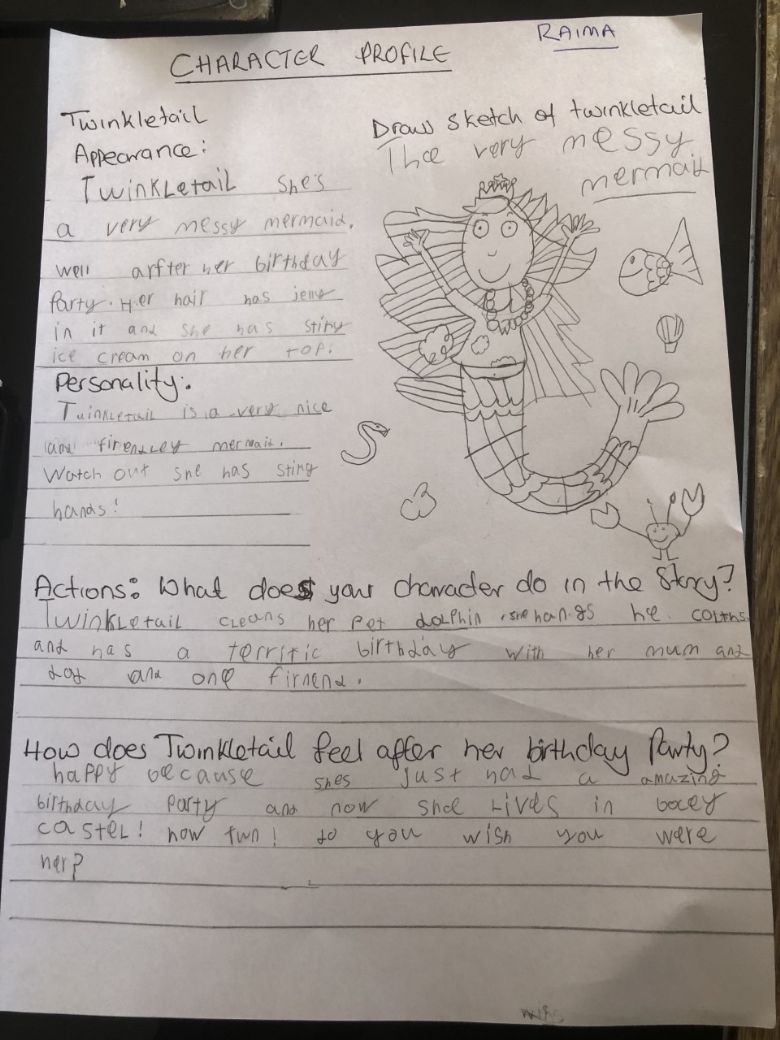 RAIMA
CHARACTER PROFILE
Twinkletail
Appearance:
Twinkletail she's
a very messy mermaid.
well arfter her birthday
Party. Her hair has jelly
in it and she has stiky
ice cream on her top.
Personality:
Twinkletail is a very nice
and firendley mermaid.
Watch out she has stiky
hands!
Draw sketch of twinkletail
Thee very messy
mermaid
Actions: What does your character do in the Story?
Twinkletail cleans her Pet dolphin, she hangs he coltns
and has a terrific birthday with her mum and
dad and one firnend.
How does Twinkletail feel after her birthday Party?
happy because shes just had a amazing
birthday Party and now shoe Lives in
castel! how fun! do you wish you were
her?